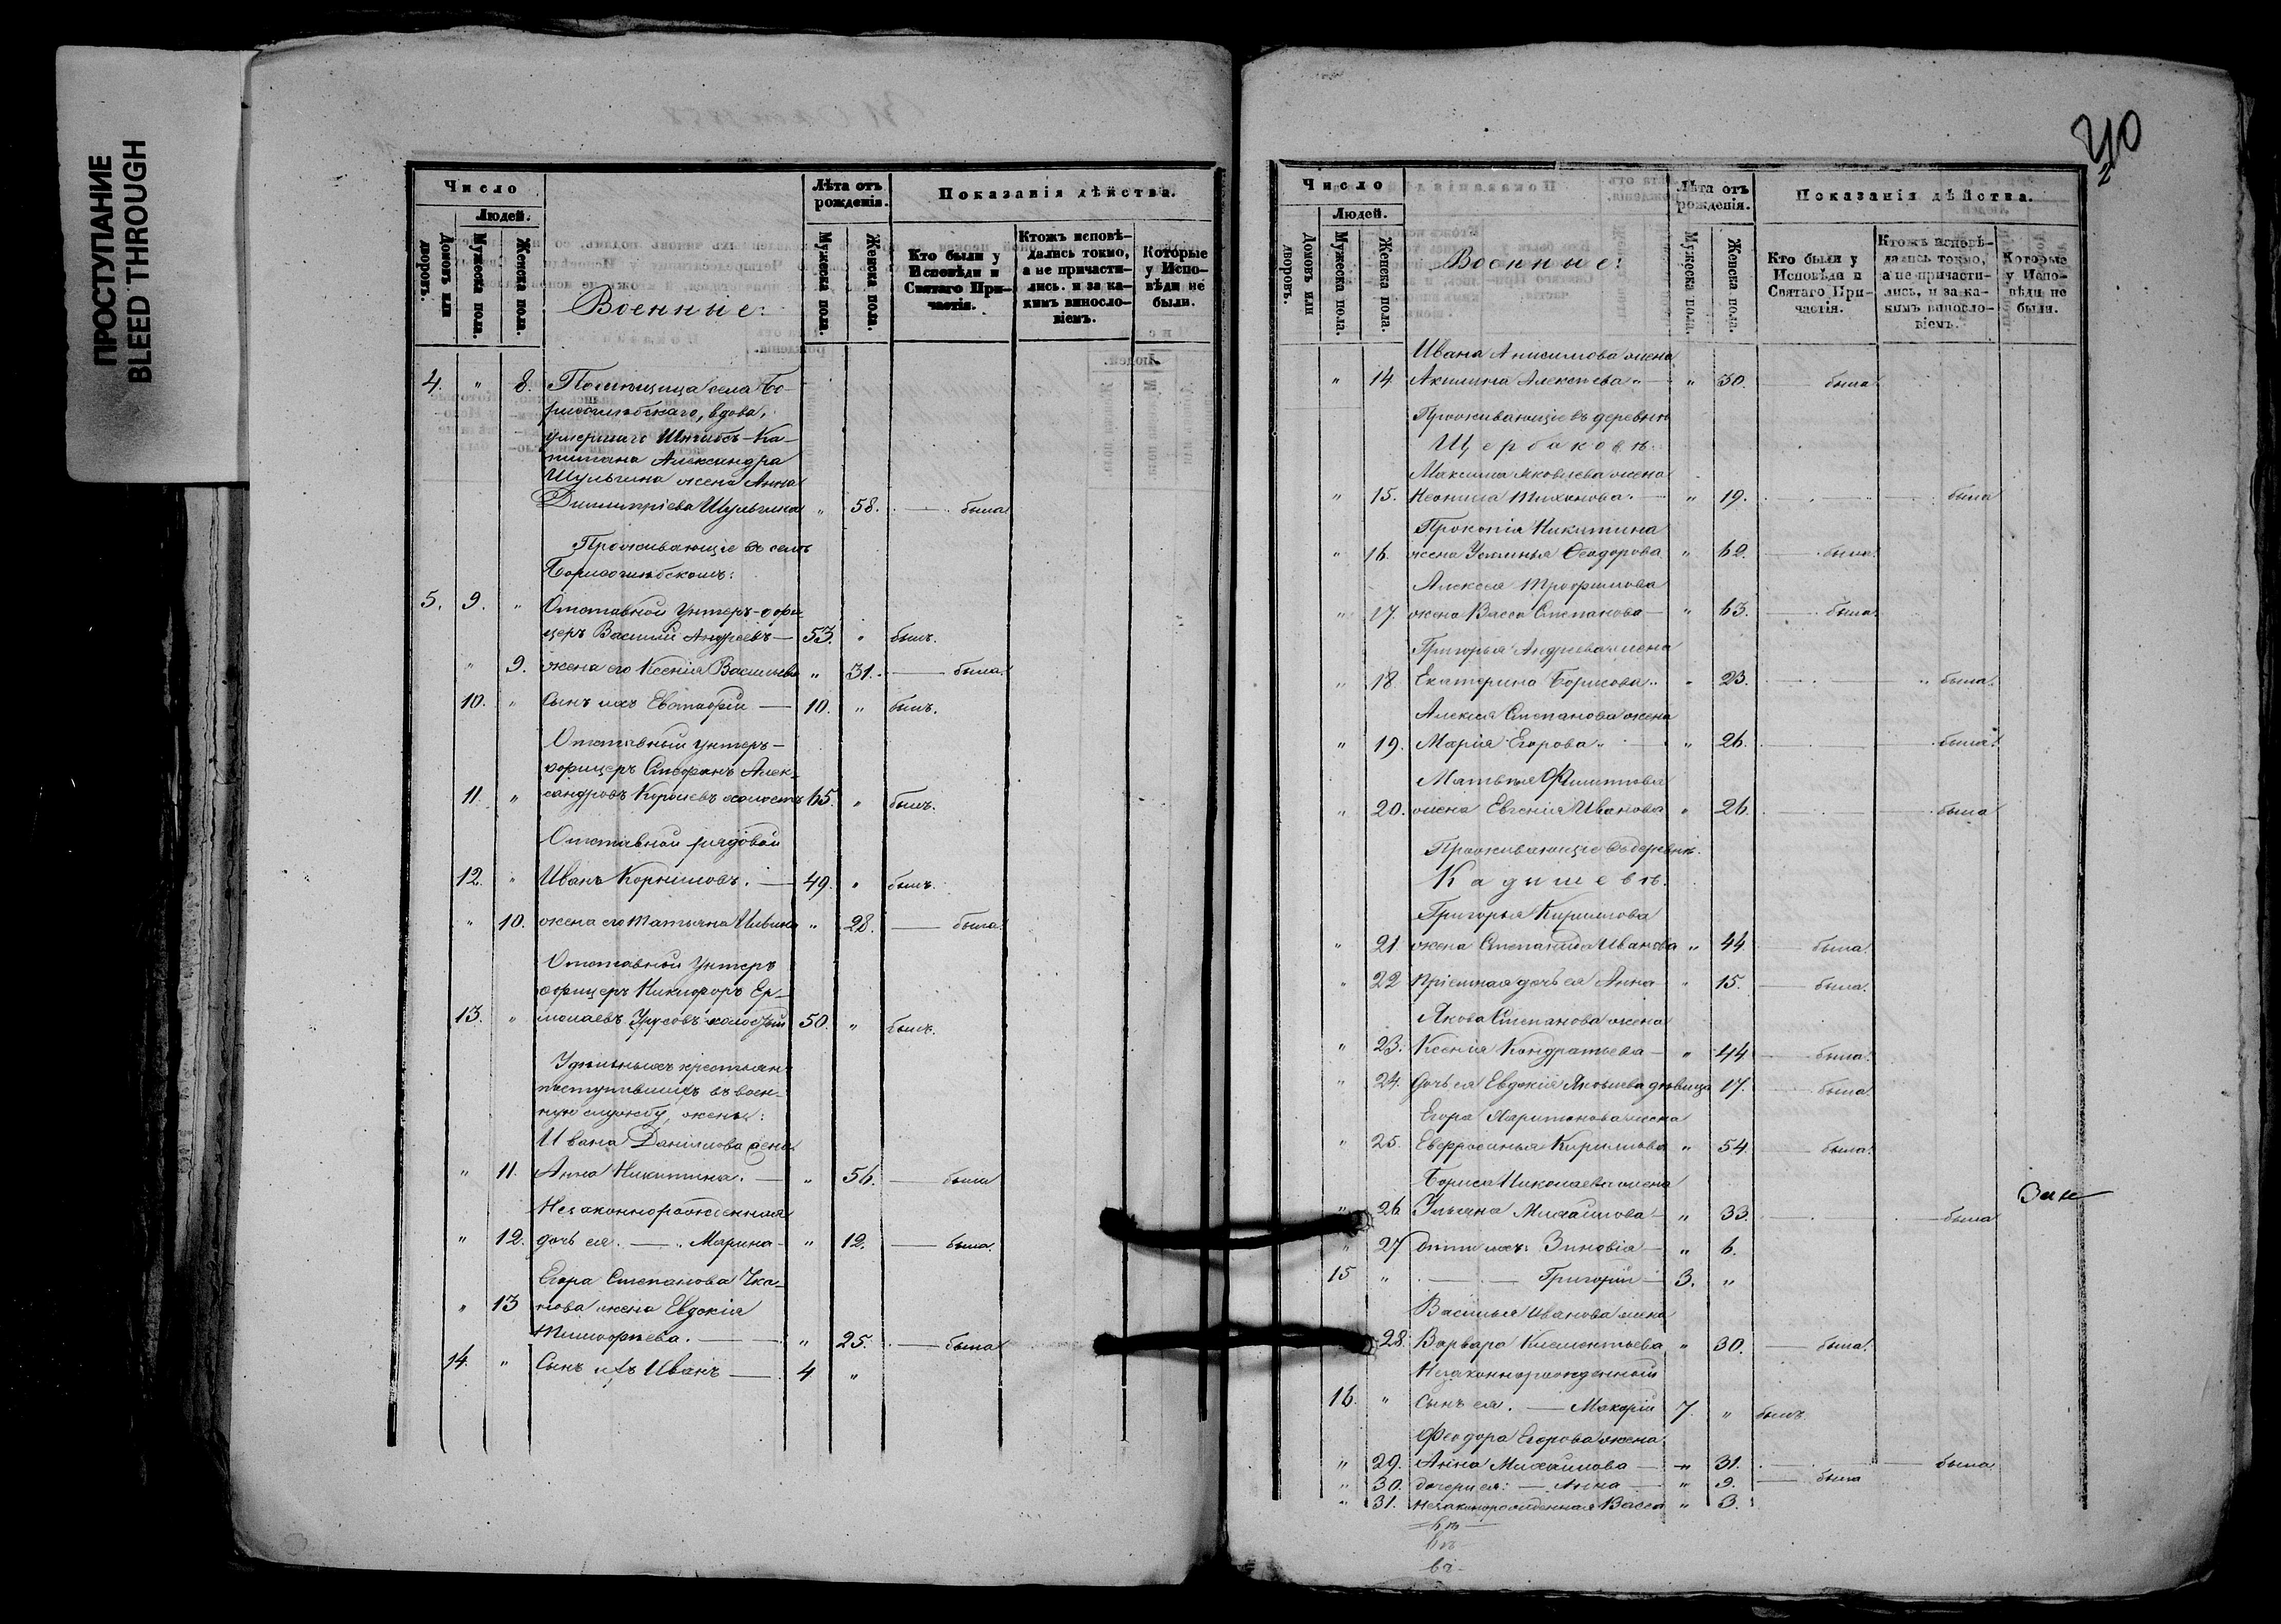 ПРОСТУПАНИЕ
BLEED THROUGH
Число
Людей.
Домовъ или дворовъ.
Мужеска пола.
Женска пола.
Военные:
Лѣта отъ рожденія.
Мужеска пола.
Женска пола.
Показанія дѣйства.
Кто были у Исповѣди и Святаго Причастія.
Ктожъ исповѣдались токмо, а не причастились. и за какимъ винословіемъ.
Которые у Исповѣди не были.
4. " 8. Помѣщица села Бо-
рисоглѣбскаго, вдова,
умершаго Штабсъ-Ка-
питана Александра
Шульгина жена Анна
Димитріева Шульгина " 58. — была
Проживающіе въ селѣ
Борисоглѣбскомъ:
5. 9. " Отставной Унтеръ-офи-
церъ Василій Андреевъ — 53. " былъ.
" 9. жена его Ксенія Васильева " 31. — была.
10. " Сынъ ихъ Евстафій — 10. " былъ.
Отставный унтеръ-
офицеръ Стефанъ Алек-
11. " сандровъ Королевъ холостъ 65. " былъ.
Отставной рядовой
12. " Иванъ Корниловъ. — 49. " былъ.
" 10. жена его Татьяна " 28. — была.
Отставной Унтеръ
офицеръ Никифоръ Ер-
13. " молаевъ холостый 50. " былъ.
Удѣльныхъ крестьянъ
поступившихъ въ воен-
ную службу, жены:
Ивана Данилова жена
" 11. Анна Никитина. — " 56. — была
Незаконнорожденная
" 12. дочь ея. — Марина " 12. — была.
Егора Степанова Чка-
" 13 лова жена Евдокія
Тимофѣева. — " 25. — была
14. " Сынъ ихъ Иванъ — 4 "
40
2
Число
Людей.
Домовъ или дворовъ.
Мужеска пола.
Женска пола.
Военные:
Лѣта отъ рожденія.
Мужеска пола.
Женска пола.
Показанія дѣйства.
Кто были у Исповѣди и Святаго Причастія.
Ктожъ исповѣдались токмо, а не причастились, и за какимъ винословіемъ.
Которые у Исповѣди не были.
Ивана Анисимова жена
" 14 Акилина Алексѣева " — " 30. — была
Проживающіе въ деревнѣ
Щербаковѣ:
Максима Яковлева жена
" 15. Неонила Тихонова. — " 19. — была
Прокопія Никитина
" 16. жена Устинья Ѳеодорова " 62. — была.
Алексея Трофимова
" 17. жена Васса Степанова — " 63. — была
Григорья Андреева жена
" 18. Екатерина Борисова " 23. — была.
Алексія Степанова жена
" 19. Марія Егорова — " 26. — была.
Матвѣя Филиппова
" 20. жена Евгенія Иванова " 26. — была
Проживающіе въ деревнѣ.
Кадышевѣ.
Григорья Кирилова
" 21. жена Степанида Иванова " 44. — была.
" 22 Пріемная дочь ея Анна " 15. — была.
Якова Степанова жена
" 23. Ксенія Кондратьева — " 44 — была.
" 24. дочь ея Евдокія Яковлева дѣвица 17. — была.
Егора Харитонова жена
" 25. Евфросинья Кирилова " 54. — была.
Бориса Николаева жена
" 26 Ульяна Михайлова — " 33. — была
" 27 дѣти ихъ: Зиновія — " 6.
15 " — Григорій — 3. "
Василья Иванова жена
28. Варвара Клементьева " 30. — была.
Незаконнорожденный
16. " Сынъ ея. — Макарій 7. " былъ.
Феодора Егорова жена
" 29. Анна Михайлова — " 31. — была.
" 30. дочери ея: — Анна — " 9. — была
" 31. незаконорожденная Васса " 3.